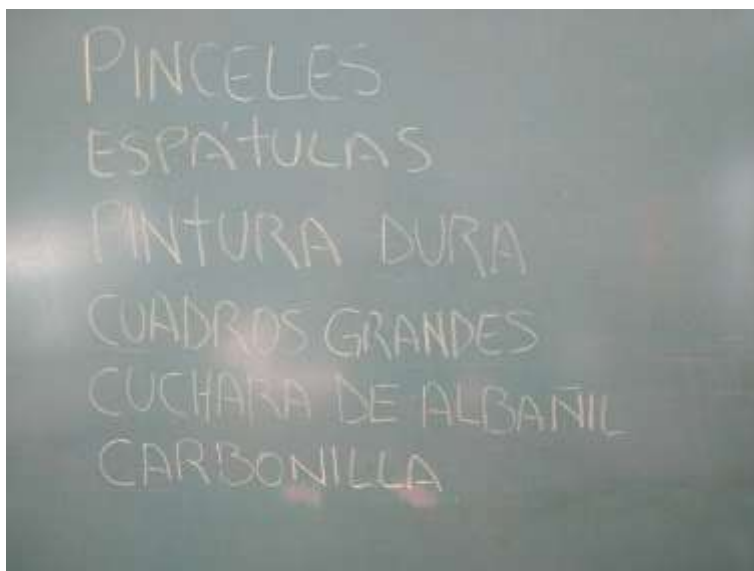 PINCELES
ESPÁTULAS
PINTURA DURA
CUADROS GRANDES
CUCHARA DE ALBAÑIL
CARBONILLA